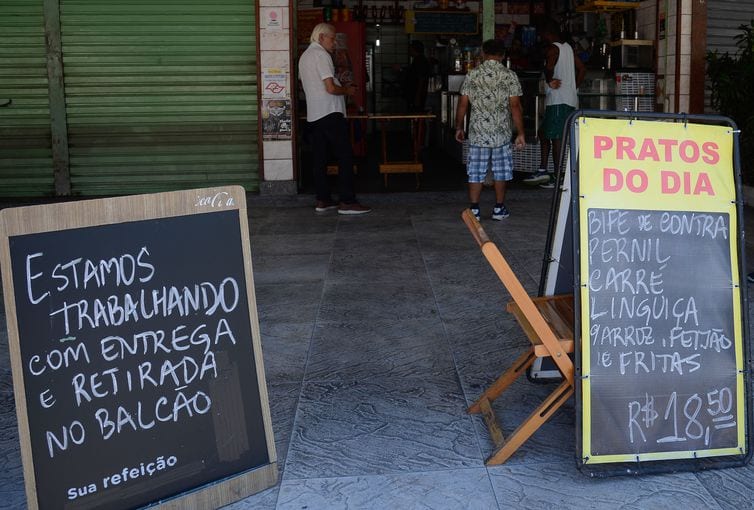 ESTAMOS
TRABALHANDO
COM ENTREGA
E RETIRADA
NO BALCÃO
Sua refeição
PRATOS
DO DIA
BIFE DE CONTRA
PERNIL
CARRÉ
LINGUIÇA
ARROZ, FEIJÃO
E FRITAS
R$ 18,50